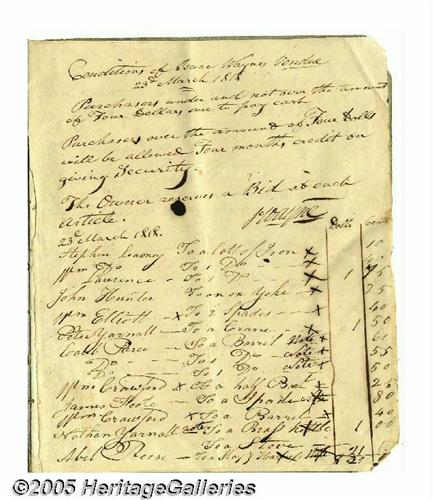 Conditions of Isaac Waynes Vendue
23d March 1818
Purchasers under and not over the amount
of Four Dollars are to pay cash
Purchasers over the amount of Four Dolls
will be allowed Four months credit on
giving Security.
The Owner reserves a Bid at each
article.
Is Wayne
23d March 1818. Dolls Cents
Stephen To a lott of Iron x 10
Wm Do To 1 Do x
Lawrence To 1 Do x 1 75
John Hunter To an ox Yoke x 25
Wm Elliott x To 2 Spades x 40
Peter Yarnall To a Crane x 1 50
To a Barrel Note x 61
Do To 1 Do Note x 55
Do To 1 Do x 50
Wm Crawford x To a half x 25
James To a Spade 68
Wm Crawford x To a Barrel x 40
Nathan Yarnall Note To a Brass kettle 1 00
To a Stove
Abel Reese To a &
©2005 HeritageGalleries